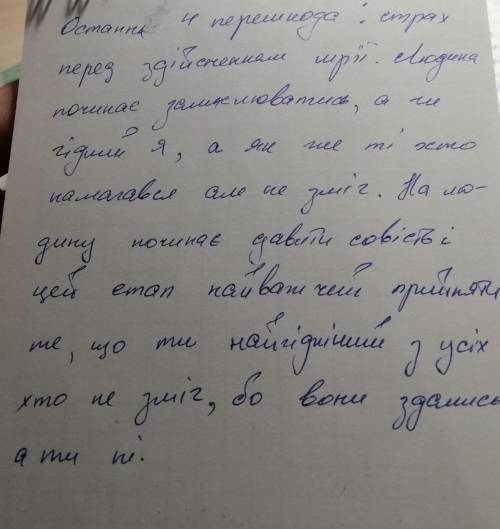 Остання 4 перешкода: страх
перед здійсненням мрії. Людина
починає замислюватись, а чи
гідний я, а як же ті хто
намагався але не зміг. На лю-
дину починає давити совість і
цей етап найважчий прийняти
те, що ти найгідніший з усіх
хто не зміг, бо вони здались
а ти ні.